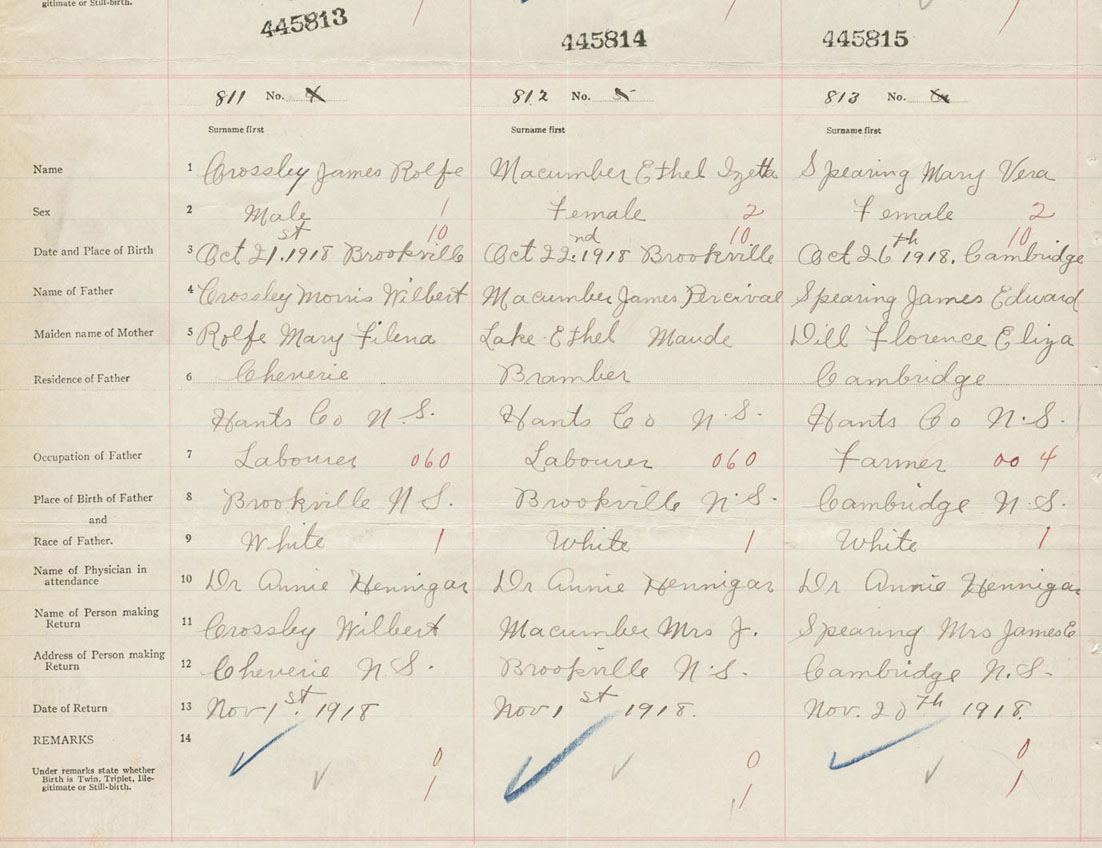 gitimate or Still-birth.
445813 445814 445815
811 No. 4 812 No. 5 813 No. 6
Surname first Surname first Surname first
Name 1 Crossley James Rolfe Macumber Ethel Izetta Spearing Mary Vera
Sex 2 Male 1 Female 2 Female 2
10 10 10
Date and Place of Birth 3 Oct 21st. 1918 Brookville Oct 22nd. 1918 Brookville Oct 26th 1918. Cambridge
Name of Father 4 Crossley Morris Wilbert Macumber James Percival Spearing James Edward
Maiden name of Mother 5 Rolfe Mary Filena Lake Ethel Maude Dill Florence Eliza
Residence of Father 6 Cheverie Bramber Cambridge
Hants Co N.S. Hants Co N.S. Hants Co N.S.
Occupation of Father 7 Labourer 060 Labourer 060 Farmer 00 4
Place of Birth of Father 8 Brookville N S. Brookville N.S. Cambridge N.S.
and
Race of Father. 9 White 1 White 1 White 1
Name of Physician in
attendance 10 Dr Annie Hennigar Dr Annie Hennigar Dr Annie Hennigar
Name of Person making
Return 11 Crossley Wilbert Macumber Mrs J. Spearing Mrs James E
Address of Person making
Return 12 Cheverie N S. Brookville N.S. Cambridge N.S.
Date of Return 13 Nov 1st. 1918 Nov 1st 1918. Nov. 20th 1918.
REMARKS 14
0 0 0
Under remarks state whether
Birth is Twin, Triplet, Ille-
gitimate or Still-birth. 1 1 1